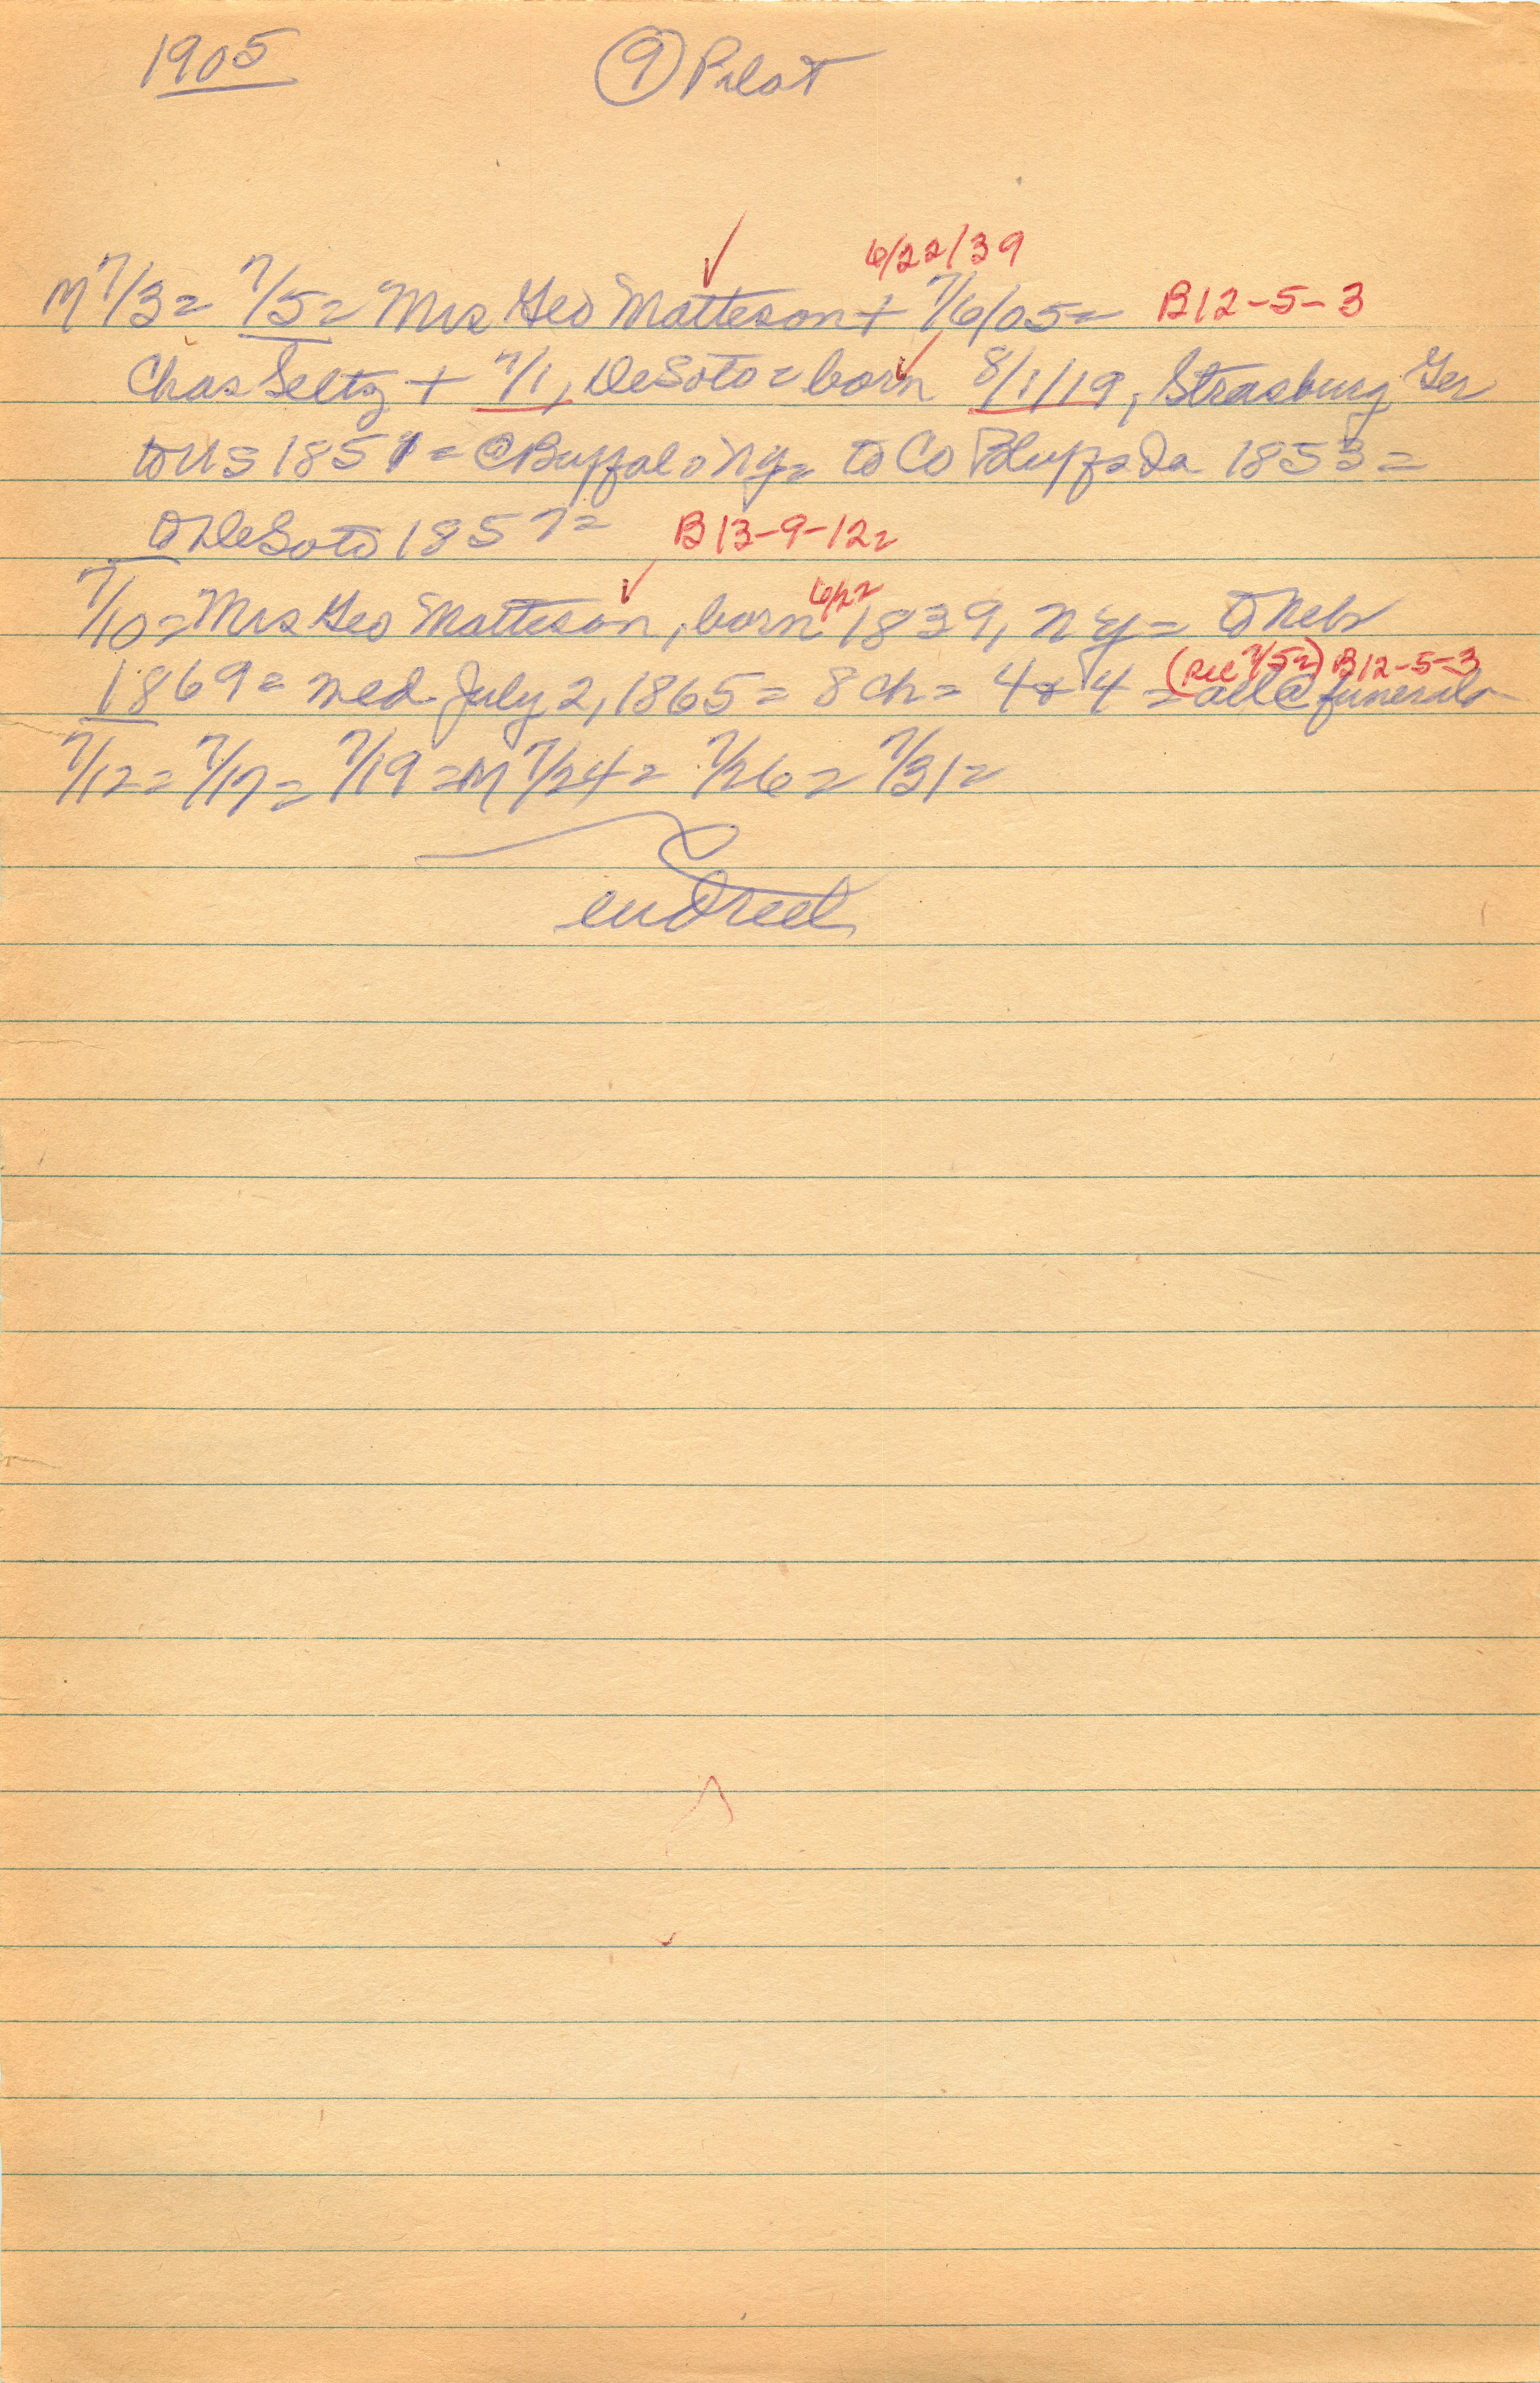 1905 ⑨ Pilot
6/22/39
M 7/3 = 7/5 = Mrs Geo Matteson + 7/6/05 = B12-5-3
Chas Seltz + 7/1, DeSoto = born 8/1/19, Strasburg Ger
to US 1851 = @ Buffalo NY = to Co Bluffs Ia 1853 =
to DeSoto 1857 = B13-9-12 =
6/22
7/10 = Mrs Geo Matteson, born 1839, NY = to Neb
(see 7/5 =) B12-5-3
1869 = med July 2, 1865 = 8 ch = 4 & 4 = all @ funeral =
7/12 = 7/17 = 7/19 = M 7/24 = 7/26 = 7/31 =
end reel